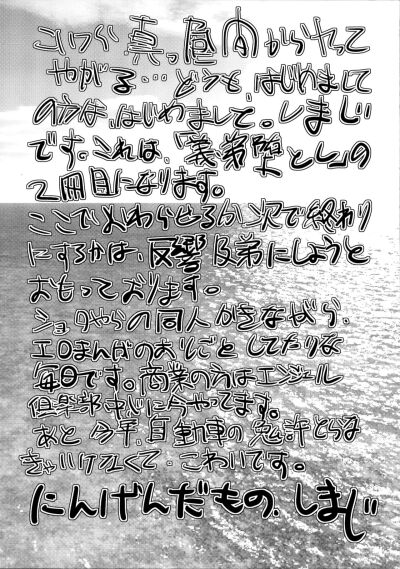 こいつら真っ昼間からヤって
やがる…どうも、はじめまして
の方は、はじめまして。しまじ
です。これは、「義弟堕とし」の
2冊目になります。
ここでおわらせるか次で終わり
にするかは、反響反弟にしようと
おもっております。
ショタやらの同人かきながら、
エロまんがのおしごとしてたりな
毎日です。商業の方はエンジェル
倶楽部中心に今やってます。
あと今年、自動車の免許とらな
きゃいけなくて、こわいです。
にんげんだもの、しまじ